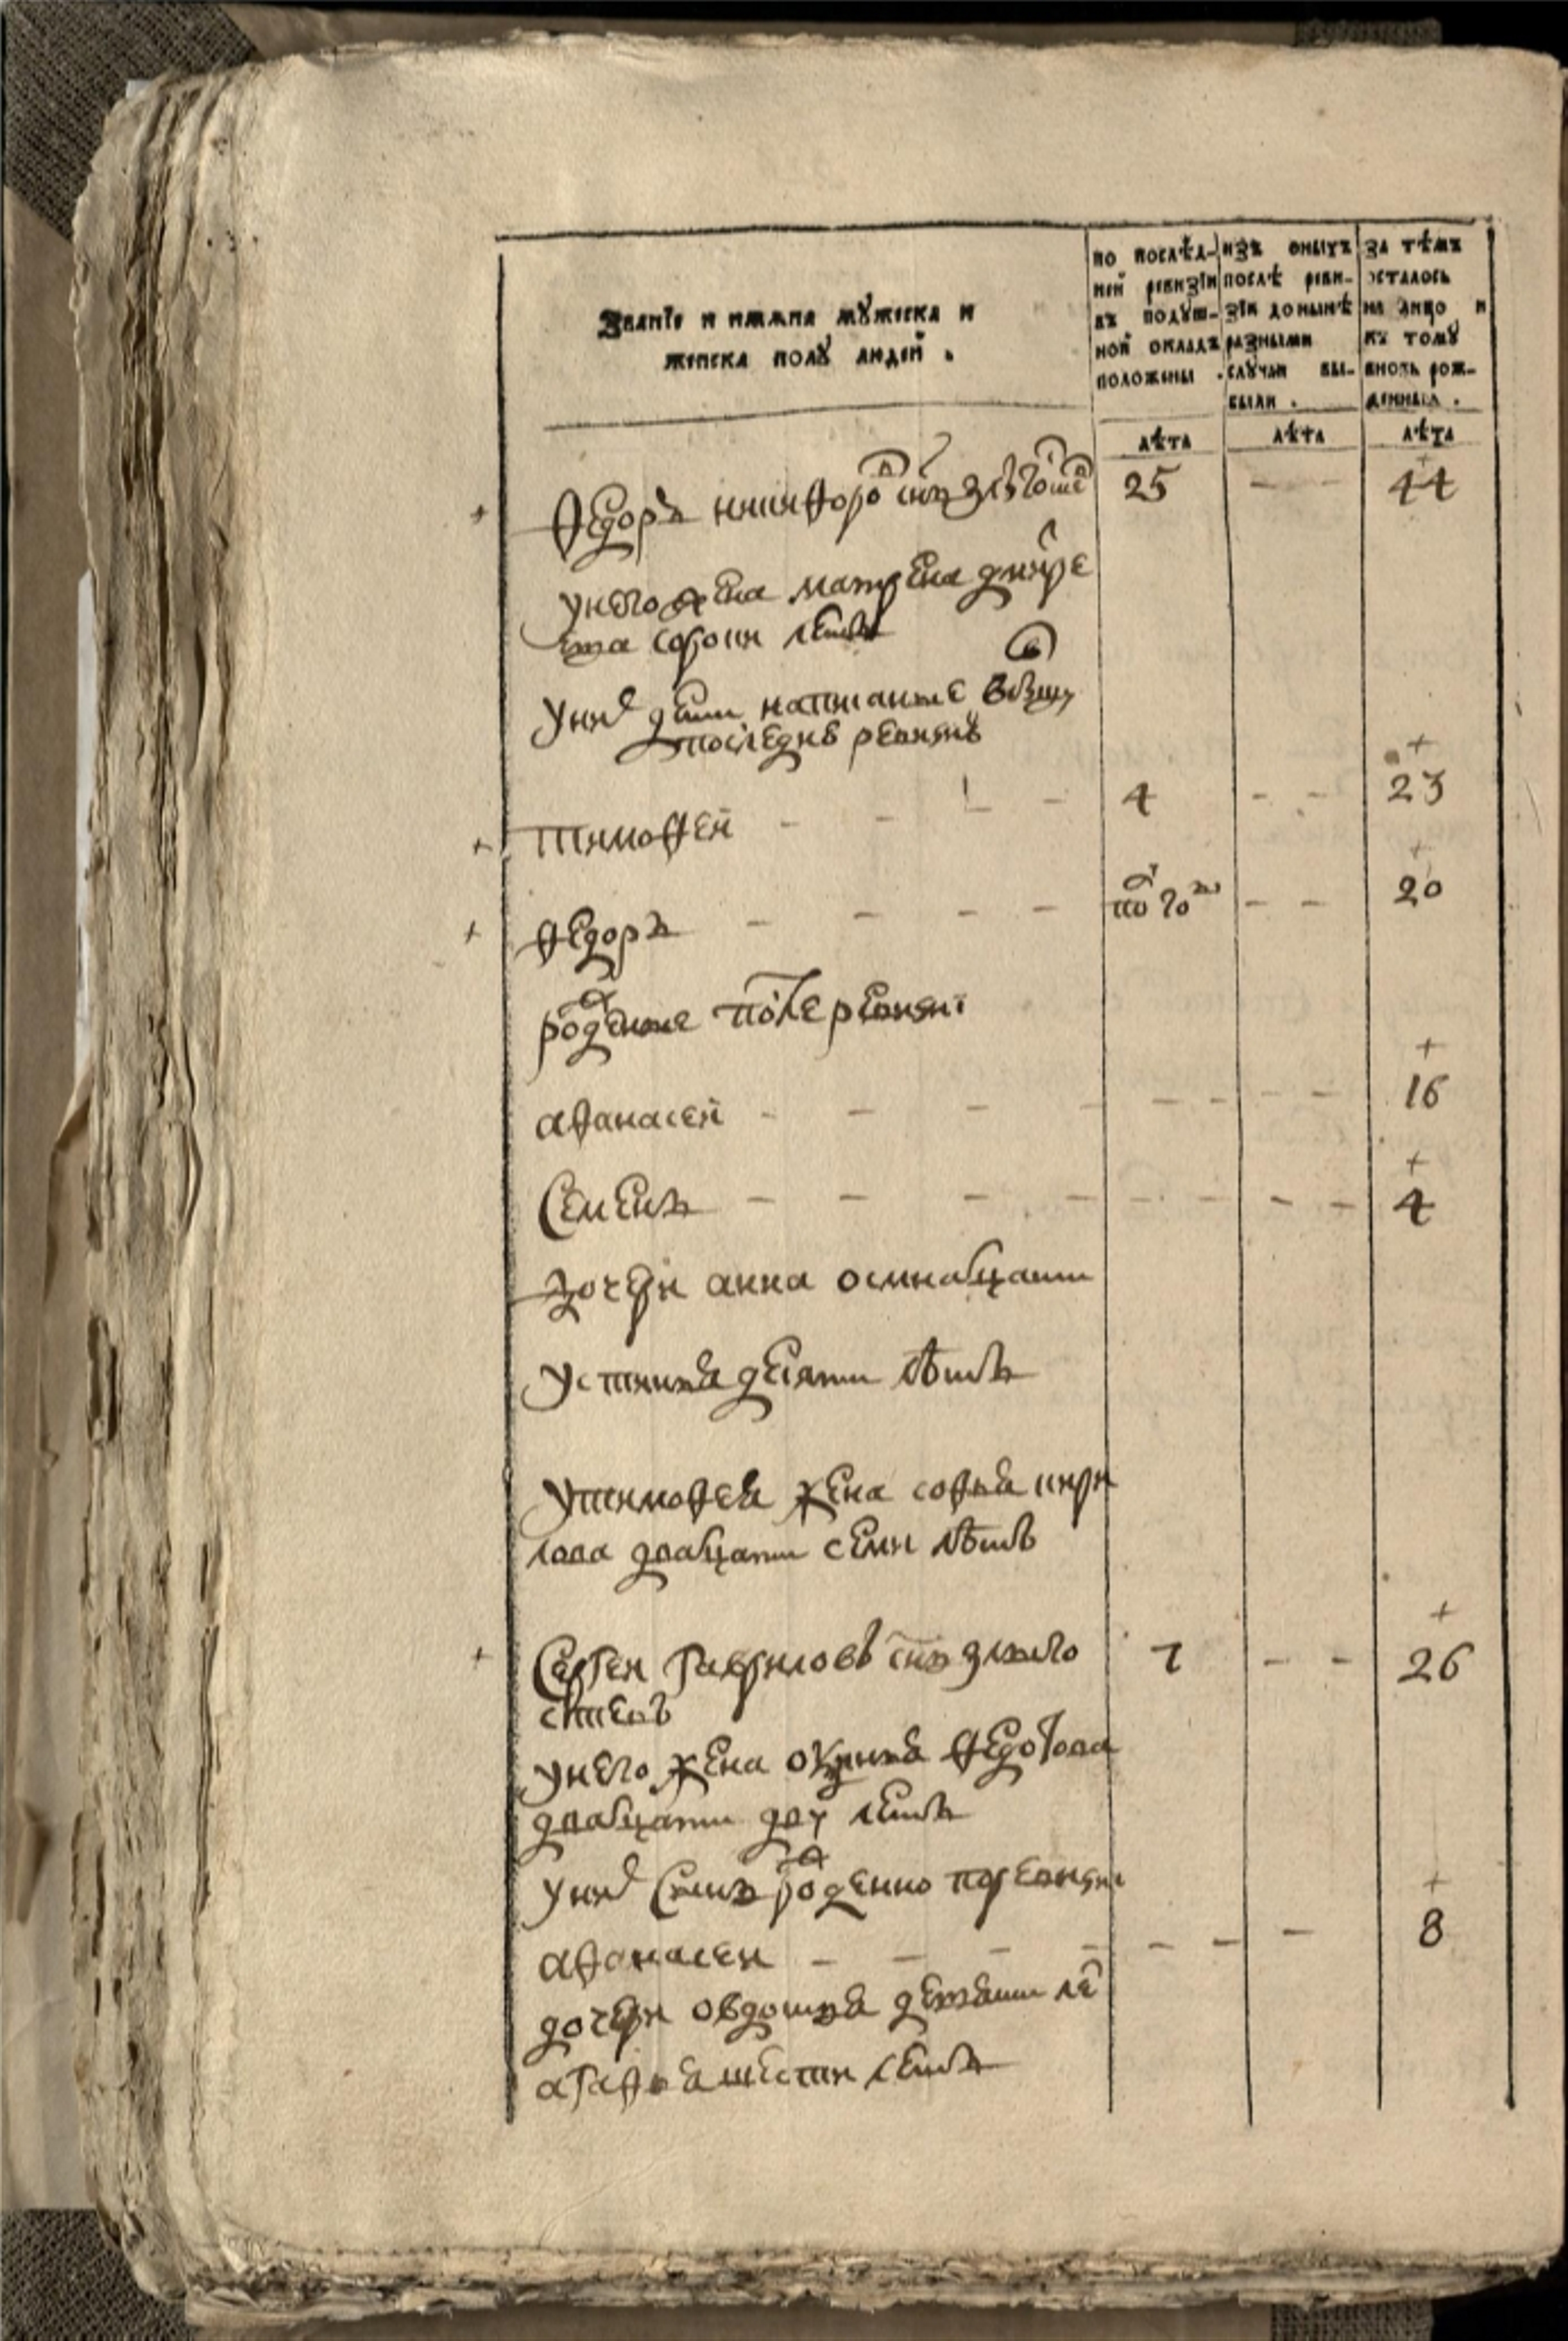 Званїе и имяна мꙋжеска и
женска полꙋ людей .
по послѣд-
ней ревизїи
въ подꙋш-
ной окладъ
положены .
изъ оныхъ
послѣ реви-
зїи донынѣ
разными
слꙋчаи вы-
были .
за тѣмъ
осталось
на лицо и
къ томꙋ
вновь рож-
денныя .
лѣта лѣта лѣта
+ Ѳедоръ никифоро снъ 25 - - 44
унего жена матрена дмитре
ева сороки летъ
уних дети написанные
последнѣ ревизиѣ
+ тимоѳей - - - - 4 - - + 23
+ ѳедоръ - - - - по год - - + 20
рожденные после ревизиі
аѳанасей - - - - - - - - + 16
Семенъ - - - - - - - - + 4
дочери анна осмнатцати
устинья десяти лѣтъ
утимоѳея жена соѳья кири
лова дватцати семи лѣтъ
+ Сергеи гаврилов снъ 7 - - + 26
унего жена ѳедотова
дватцати дву летъ
уних сынъ рожденно по ревизиі
аѳанасеи - - - - - - - + 8
дочери овдотья девяти ле
агаѳья шести летъ